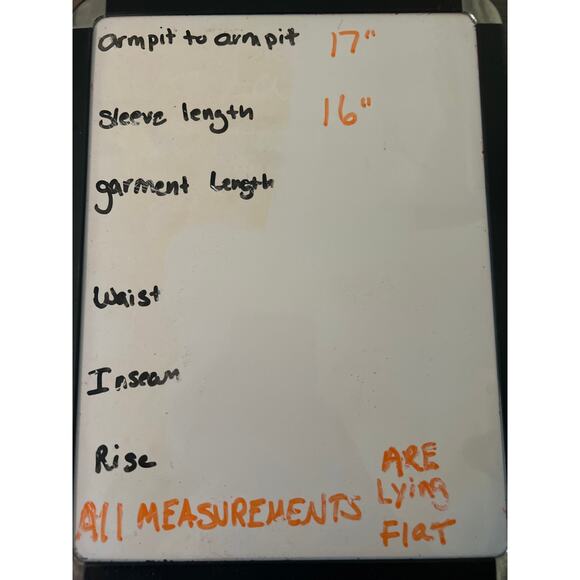 armpit to armpit 17"
Sleeve length 16"
garment Length
Waist
Inseam
Rise
All MEASUREMENTS ARE
Lying
Flat